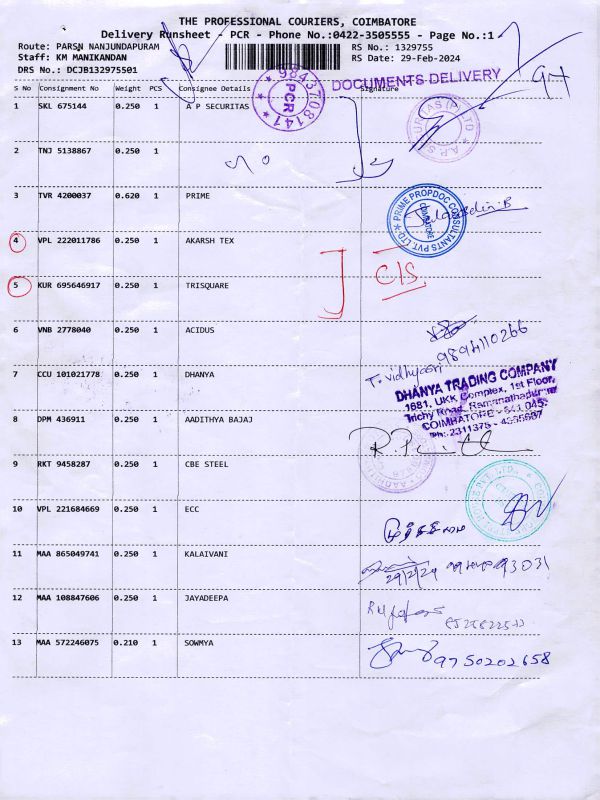 THE PROFESSIONAL COURIERS, COIMBATORE
Delivery Runsheet - PCR - Phone No.:0422-3505555 - Page No.:1
Route: PARSN NANJUNDAPURAM RS No.: 1329755
Staff: KM MANIKANDAN RS Date: 29-Feb-2024
DRS No.: DCJB132975501
DOCUMENTS DELIVERY
PCR
S No Consignment No Weight PCS Consignee Details Signature
1 SKL 675144 0.250 1 A P SECURITAS
2 TNJ 5138867 0.250 1
3 TVR 4200037 0.620 1 PRIME
PRIME PROPDOC CONSULTANTS PVT. LTD.
COIMBATORE
4 VPL 222011786 0.250 1 AKARSH TEX
C/S
5 KUR 695646917 0.250 1 TRISQUARE
6 VNB 2778040 0.250 1 ACIDUS
9894110266
7 CCU 101021778 0.250 1 DHANYA
T. Vidhyasri
DHANYA TRADING COMPANY
1681, UKK Complex, 1st Floor,
Trichy Road, Ramanathapuram
COIMBATORE - 641 045.
8 DPM 436911 0.250 1 AADITHYA BAJAJ
9 RKT 9458287 0.250 1 CBE STEEL
10 VPL 221684669 0.250 1 ECC
11 MAA 865049741 0.250 1 KALAIVANI
29/2/24
12 MAA 108847606 0.250 1 JAYADEEPA
13 MAA 572246075 0.210 1 SOWMYA
9750202658